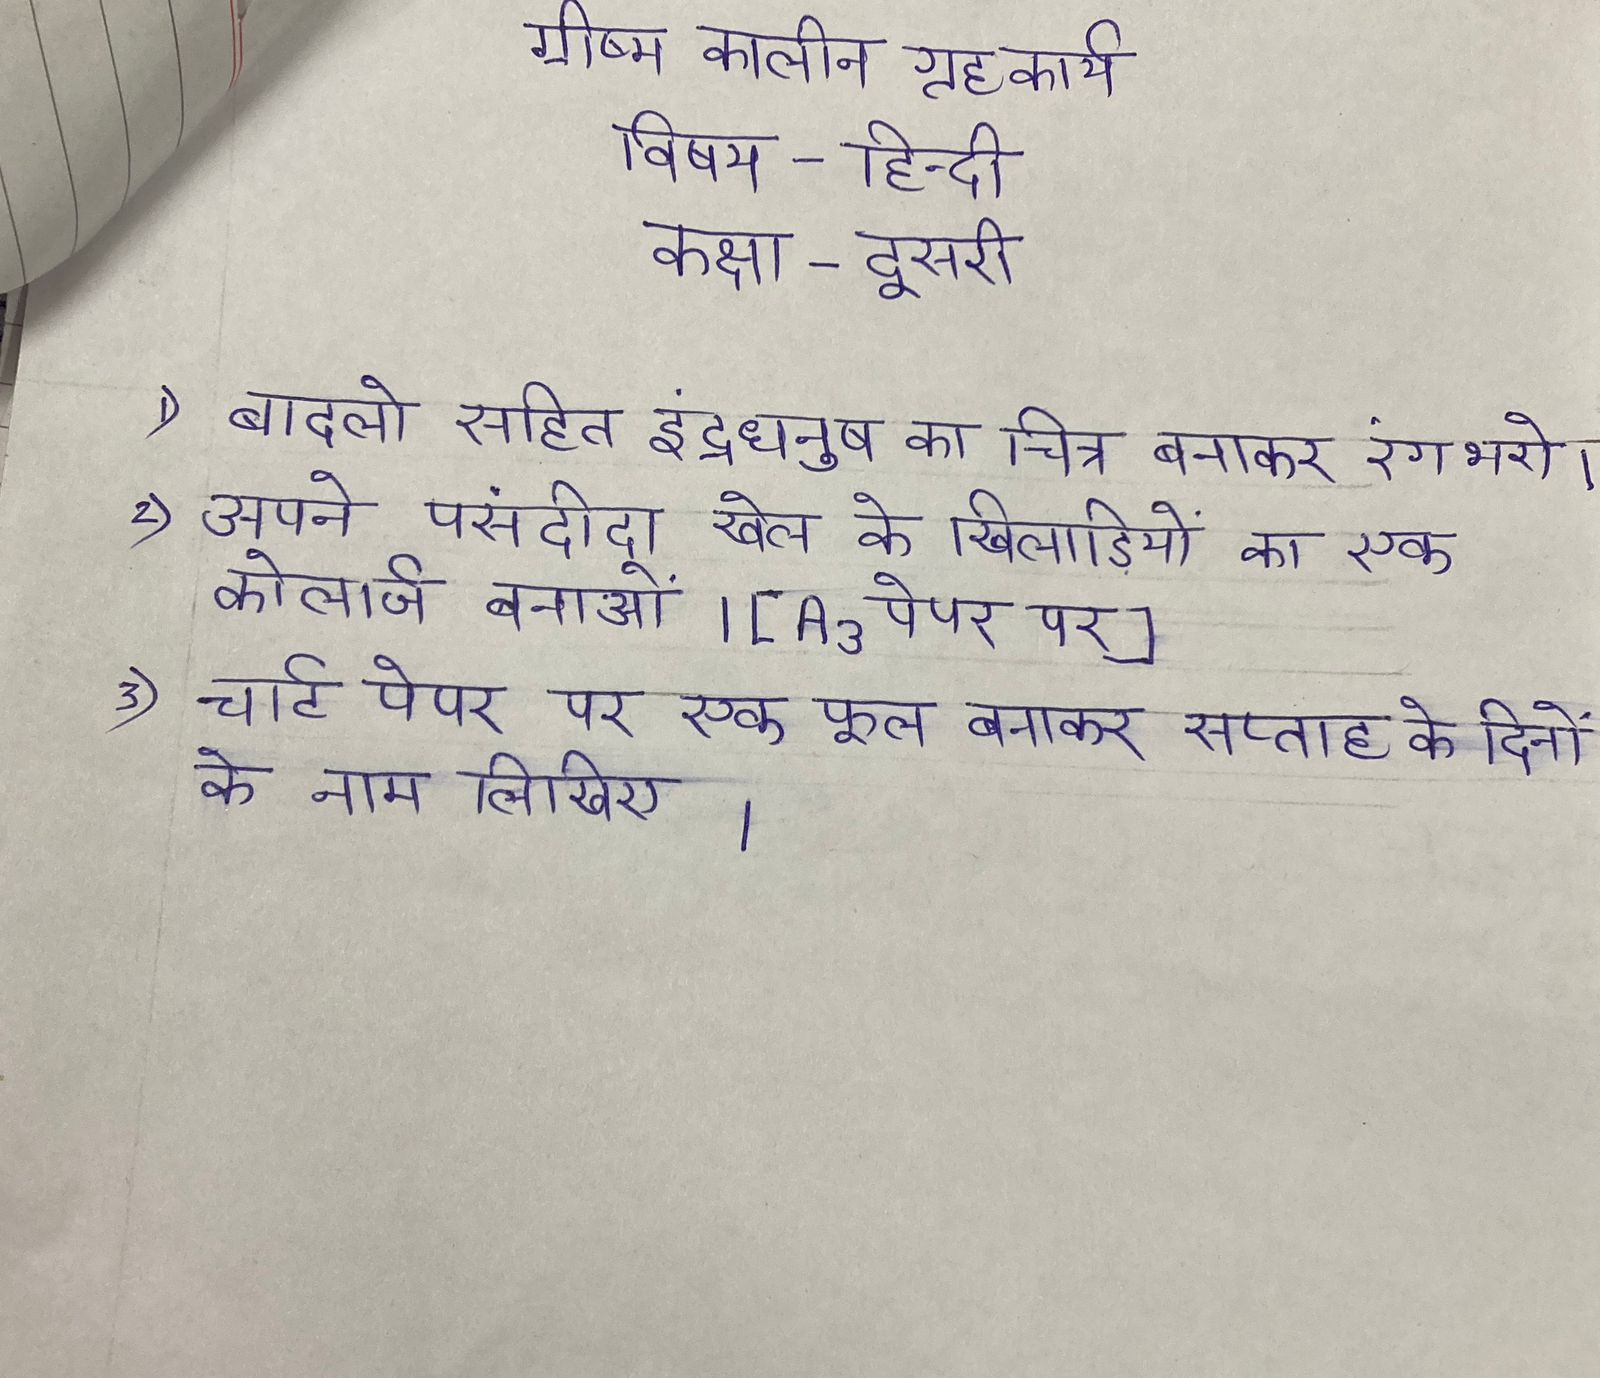 ग्रीष्म कालीन गृहकार्य
विषय - हिन्दी
कक्षा - दूसरी
1) बादलो सहित इंद्रधनुष का चित्र बनाकर रंग भरो।
2) अपने पसंदीदा खेल के खिलाड़ियों का एक
कोलार्ज बनाओं । [A3 पेपर पर]
3) चार्ट पेपर पर एक फूल बनाकर सप्ताह के दिनों
के नाम लिखिए ।